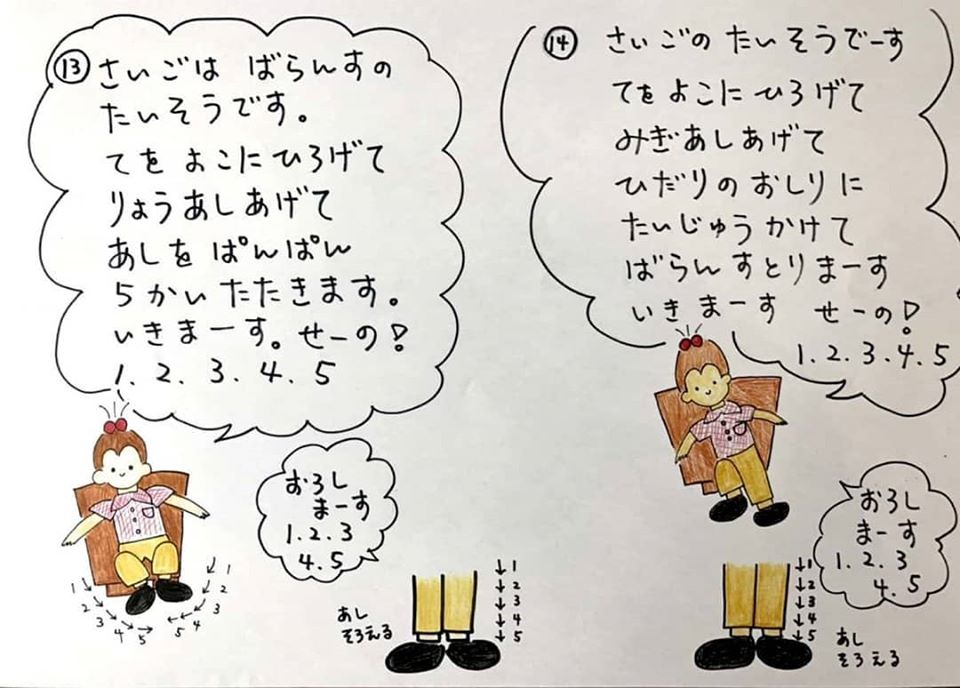 ⑬ さいごは ばらんすの
たいそうです。
てを よこに ひろげて
りょうあしあげて
あしを ぱんぱん
5かいたたきます。
いきまーす。せーの!
1. 2. 3. 4. 5
おろし
まーす
1. 2. 3
4. 5
1
2
3
4
5
1
2
3
4
5
あし
そろえる
↓1
↓2
↓3
↓4
↓5
⑭ さいごの たいそうでーす
てを よこに ひろげて
みぎあしあげて
ひだりの おしりに
たいじゅうかけて
ばらんすとりまーす
いきまーす せーの!
1. 2. 3. 4. 5
おろし
まーす
1. 2. 3
4. 5
↓1
↓2
↓3
↓4
↓5
あし
そろえる